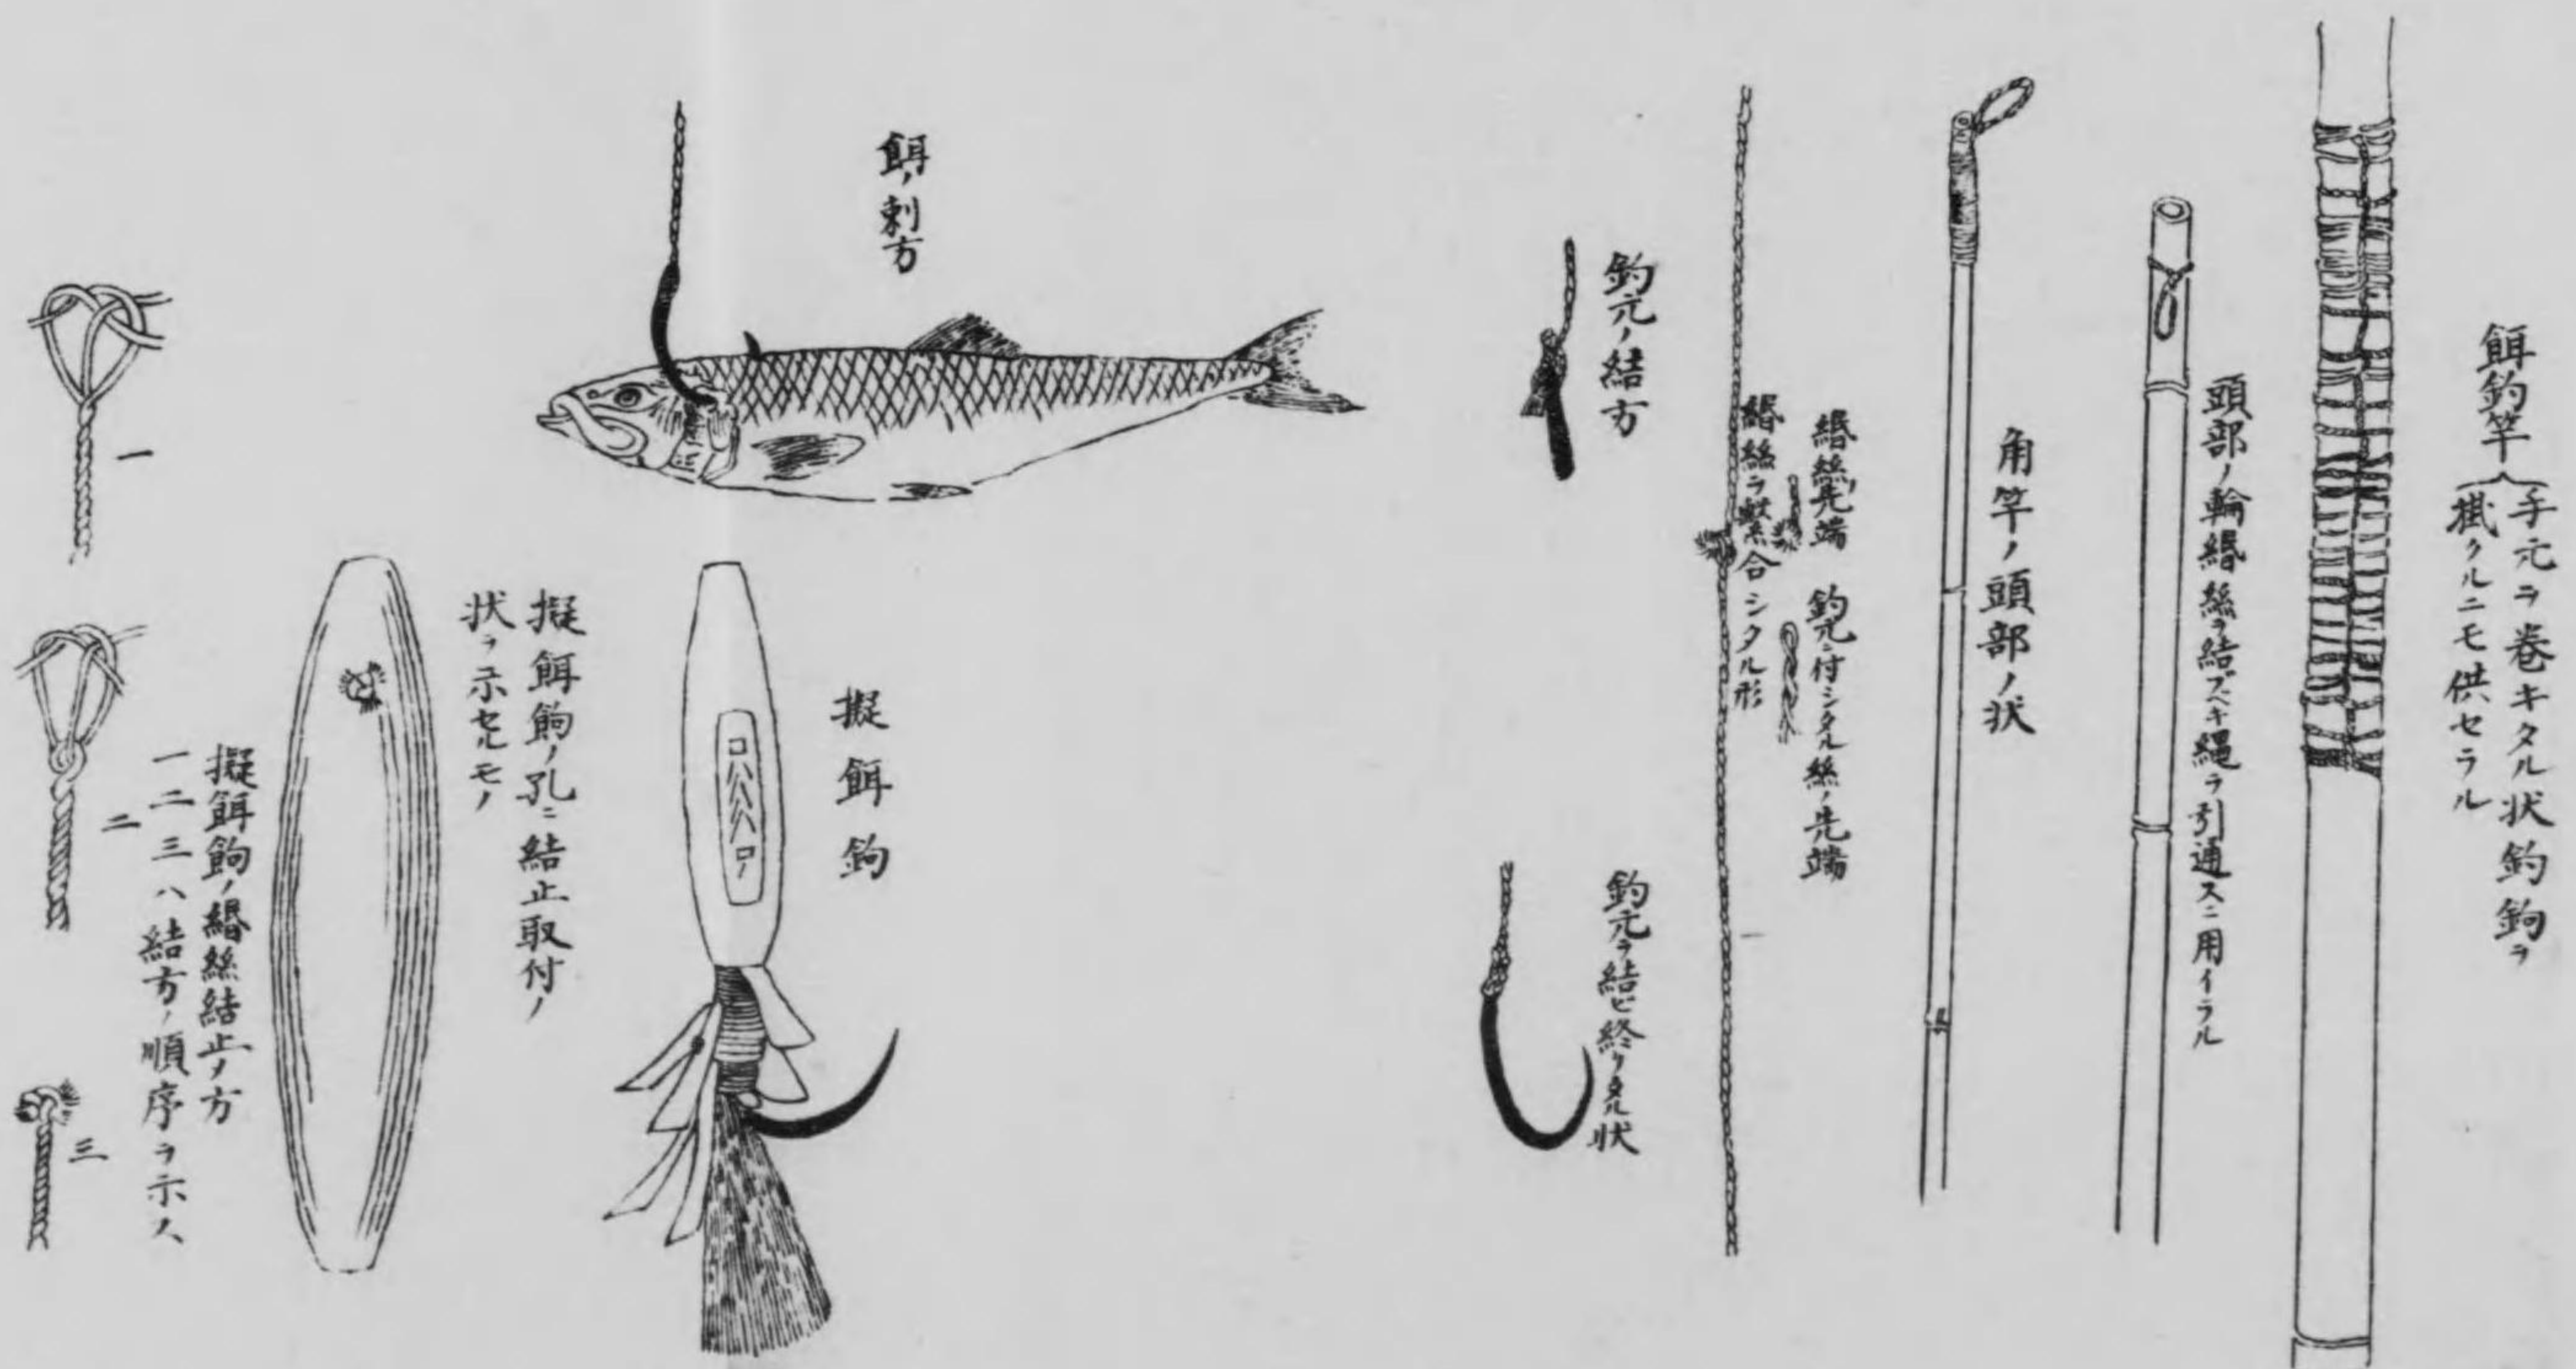 餌釣竿ヘ
手元ヲ巻キタル状釣鉤ヲ
掛クルニモ供セラル
頭部ノ輪緡絲ヲ結ブベキ縄ヲ引通スニ用イラル
角竿ノ頭部ノ状
緡絲ノ先端
釣元ニ付シタル絲ノ先端
緡絲ヲ繋合シタル形
釣元ノ結方
釣元ヲ結ビ終リタル状
餌ノ刺方
擬餌鉤
擬餌鉤ノ孔ニ結止取付ノ
状ヲ示セルモノ
擬餌鉤ノ緡絲結止ノ方
一二三ハ結方ノ順序ヲ示ス
一
二
三